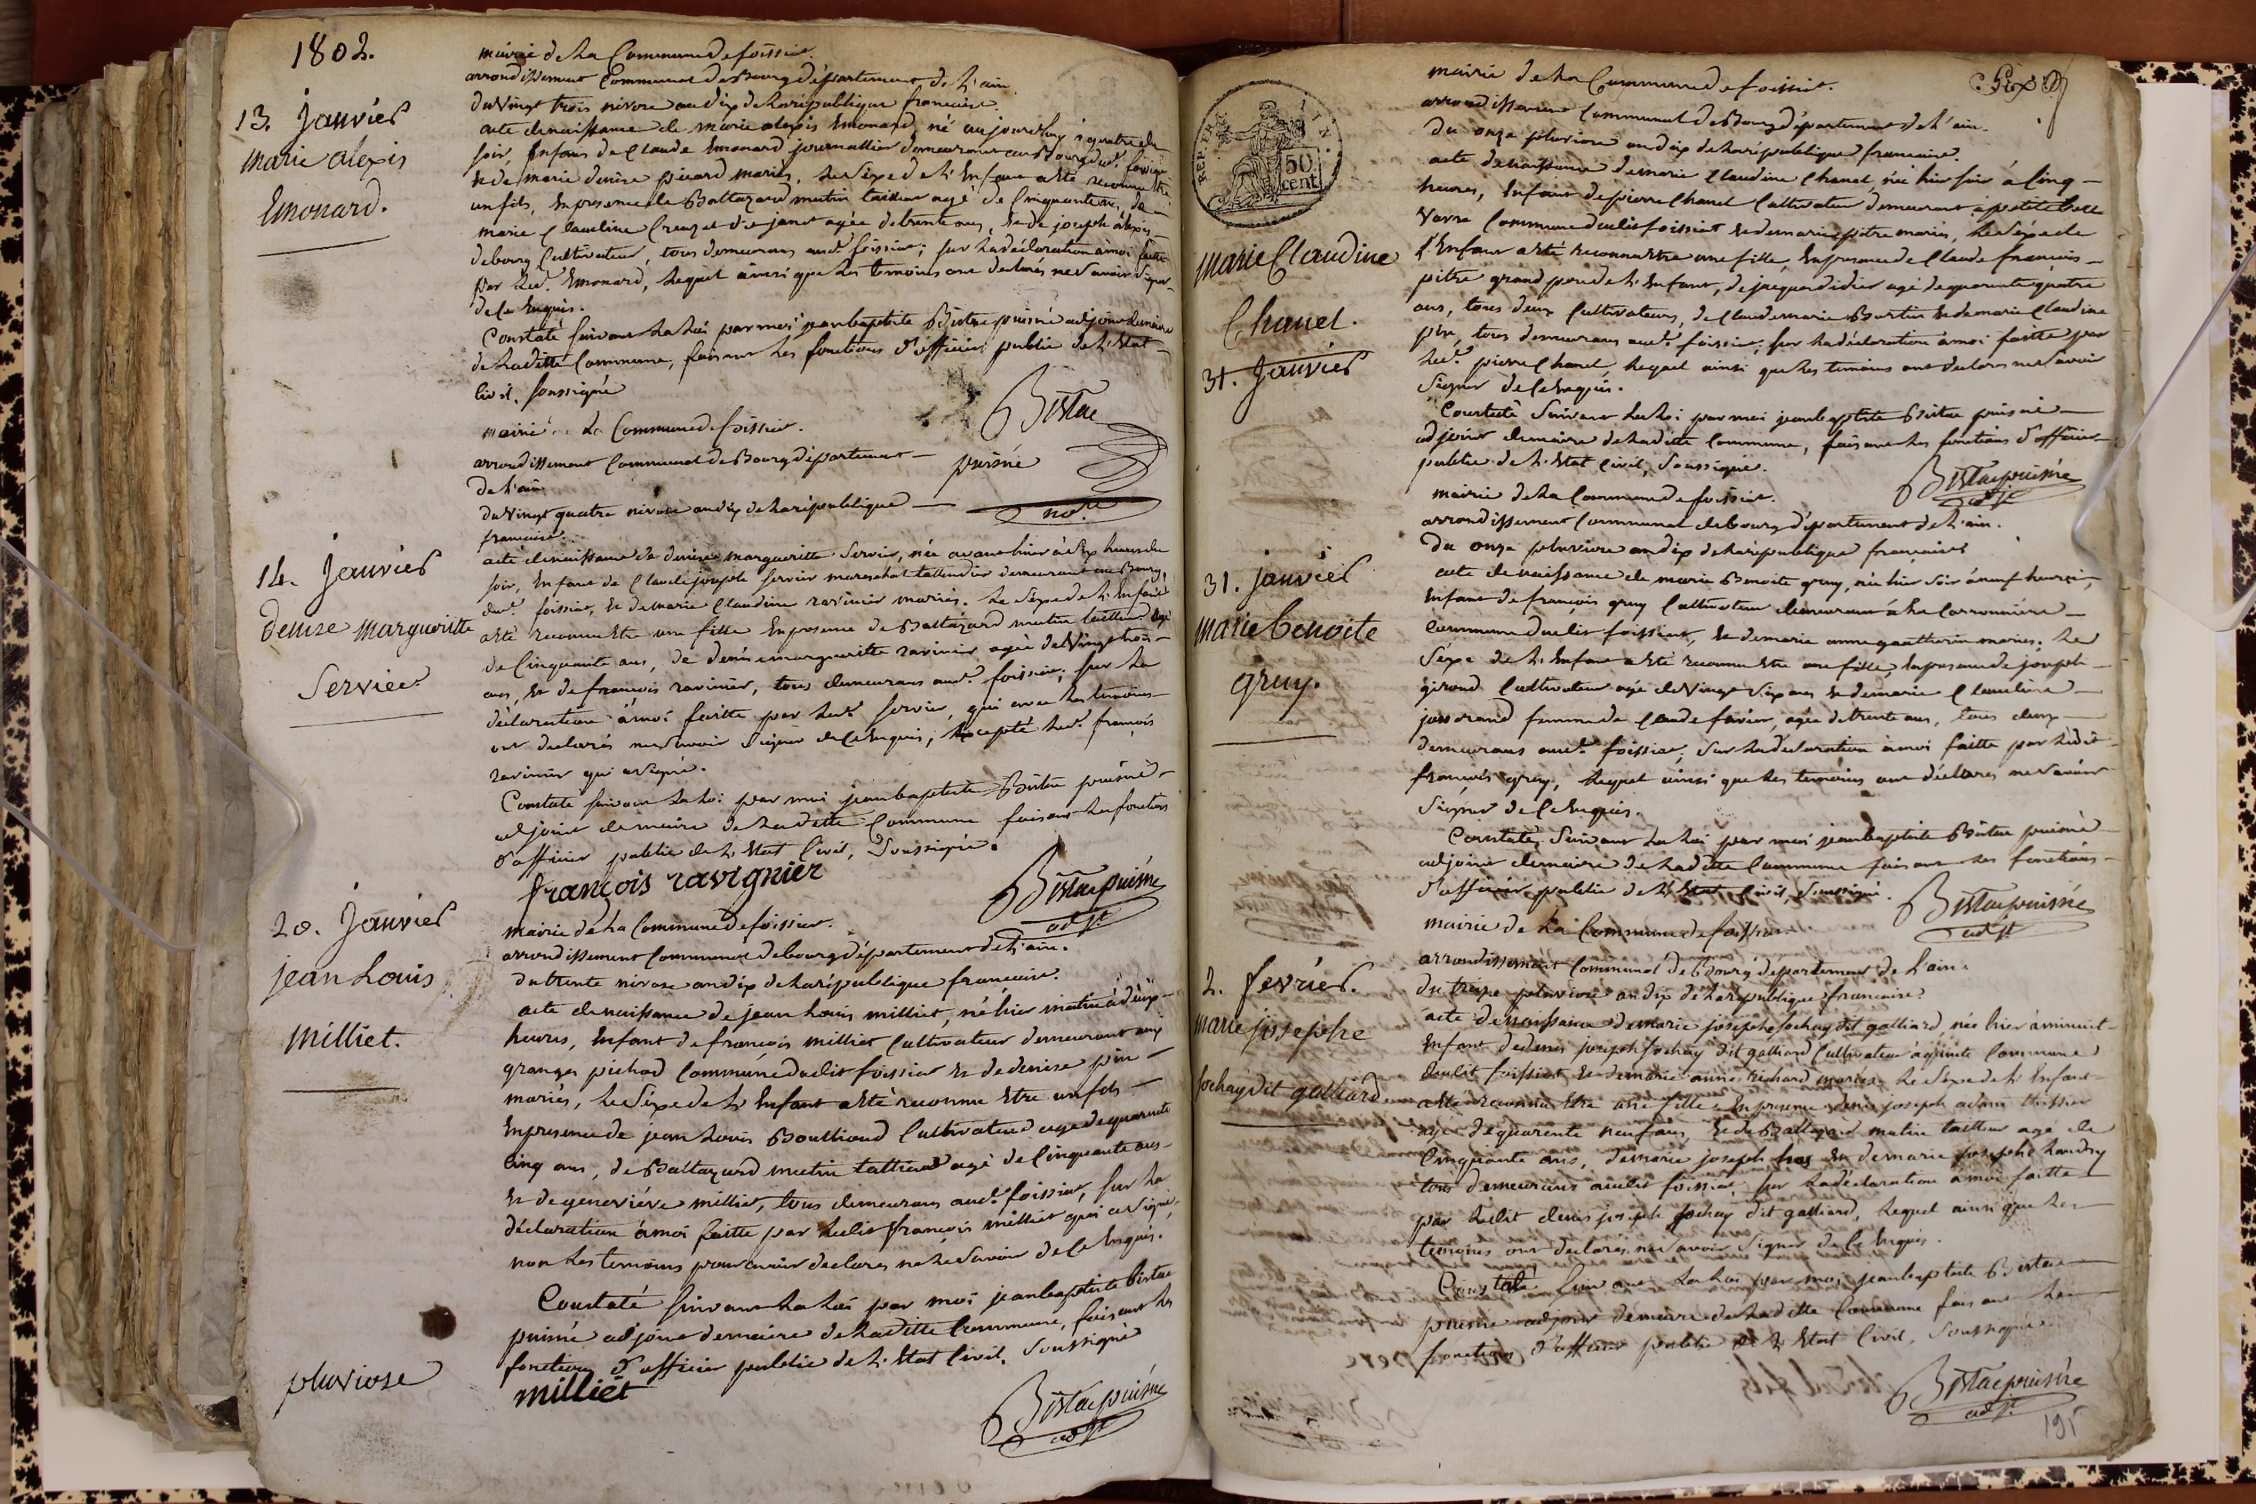 1802.
mairie de La Commune de foissiat
arrondissement Communal de Bourg département de L'ain.
du Vingt trois nivose an dix de La république francaise.
13. Janvier
marie alexis
Emonard.
acte de naissance de marie alexis Emonard, né aujourdhuy à quatre du
soir, Enfant de Claude Emonard journallier demeurant au Bourg dud.
Et de marie denise picard mariés, Le Séxe de L'Enfant a Eté reconnu Etre
un fils, En presence de Baltazard mutin tailleur agé de Cinquante ans, de
marie Claudine Creuzet agée de trente ans, Et de joseph alexis
debourg Cultivateur, tous demeurans aud. foissiat; sur La déclaration à moi faitte
par Led. Emonard, Lequel ainsi que Les temoins ont declarés ne Savoir Signer
de Ce Enquis.
Constaté suivant La Loi par moi jean baptiste Bistac puisné adjoint de maire
de La ditte Commune, faisant Les fonctions d'officier public de L'Etat
Civil, soussigné
Bistac
puisné
mairie de La Commune de foissiat.
arrondissement Communal de Bourg département
de L'ain
du Vingt quatre nivose an dix de La république
francaise.
14. Janvier
denise margueritte
Servier
acte de naissance de denise margueritte Servier, née avant hier à Six heures du
soir, Enfant de Claude joseph servier mareschal tallendier demeurant au Bourg
dud. foissiat, Et de marie Claudine ravinier mariés. Le Séxe de L'Enfant
a Eté reconnu Etre une fille En presence de Baltazard mutin tailleur agé
de Cinquante ans, de denise margueritte ravinier agée de Vingt trois
ans, Et de francois ravinier, tous demeurans aud. foissiat, sur La
déclaration à moi faitte par Led. servier, qui avec Les temoins
ont declarés ne Savoir Signer de Ce Enquis, Excepté Led. françois
ravinier qui a Signé.
Constaté suivant La Loi par moi jean baptiste Bistac puisné
adjoint de maire de La ditte Commune faisant Les fonctions
d'officier public de L'Etat Civil, Soussigné.
françois ravignier
Bistac puisné
adjt
20. Janvier
jean Louis
Milliet.
mairie de La Commune de foissiat.
arrondissement Communal de bourg département de L'ain.
du trente nivose an dix de La république francaise.
acte de naissance de jean Louis milliet, né hier matin à dix
heures, Enfant de francois milliet Cultivateur demeurant aux
granges pichod Commune dudit foissiat Et de denise
mariés, Le Séxe de L'Enfant a Eté reconnu Etre un fils
En presence de jean Louis Boullioud Cultivateur agé de quarante
Cinq ans, de Baltazard mutin tailleur agé de Cinquante ans
Et de genevieve milliet, tous demeurans aud. foissiat, sur La
déclaration à moi faitte par Ledit francois milliet qui a Signé,
non Les temoins pour avoir declarés ne Le Savoir de Ce Enquis.
Constaté suivant La Loi par moi jean baptiste bistac
puisné adjoint de maire de La ditte Commune, faisant Les
fonctions d'officier public de L'Etat Civil, Soussigné
milliet
Bistac puisné
adjt
pluviose
REP. FRA.
50
cent
Six
mairie de La Commune de foissiat.
arrondissement Communal de Bourg département de L'ain.
du onze pluviose an dix de La république francaise.
Marie Claudine
Chanel.
31. Janvier
acte de naissance de marie Claudine Chanel, née hier soir à Cinq
heures, Enfant de pierre Chanel Cultivateur demeurant
Commune dudit foissiat Et de marie pitre mariés, Le Séxe de
L'Enfant a Eté reconnu Etre une fille, En presence de Claude francois
pitre grand pere de L'Enfant, de jaques didier agé de quarente quatre
ans, tous deux Cultivateurs, de Claude marie Et de marie Claudine
tous demeurans aud. foissiat, sur La déclaration à moi faitte par
Led. pierre Chanel, Lequel ainsi que Les temoins ont declarés ne Savoir
Signer de Ce Enquis.
Constaté suivant La Loi par moi jean baptiste Bistac puisné
adjoint de maire de La ditte Commune, faisant Les fonctions d'officier
public de L'Etat Civil, Soussigné.
Bistac puisné
adjt
mairie de La Commune de foissiat.
arrondissement Communal de bourg département de L'ain.
du onze pluviose an dix de La république francaise
31. janvier
Marie benoite
gruy.
acte de naissance de marie Benoite gruy, née hier Soir à neuf heures,
Enfant de françois gruy Cultivateur demeurant à La Carronniere
Commune dudit foissiat, Et de marie anne gautherin mariés. Le
Séxe de L'Enfant a Eté reconnu Etre une fille, En presence de joseph
girond Cultivateur agé de Vingt Six ans Et de marie Claudine
femme de Claude favier, agée de trente ans, tous deux
demeurans aud. foissiat, sur La déclaration à moi faitte par Ledit
francois gruy, Lequel ainsi que Les temoins ont déclarés ne Savoir
Signer de Ce Enquis.
Constaté Suivant La Loi par moi jean baptiste Bistac puisné
adjoint de maire de La ditte Commune faisant Les fonctions
d'officier public de L'Etat Civil, Soussigné
Bistac puisné
adjt
mairie de La Commune de foissiat
arrondissement Communal de Bourg département de L'ain.
du treize pluviose an dix de La république francaise
2. fevrier.
Marie josephe
fochay dit galliard
acte de naissance de marie josephe fochay dit galliard, née hier à minuit
Enfant de denis joseph fochay dit galliard Cultivateur Commune
dudit foissiat Et de marie anne richard mariés, Le Séxe de L'Enfant
a Eté reconnu Etre une fille, En presence de joseph adam
agé de quarente neuf ans, Et de Baltazard mutin tailleur agé de
Cinquante ans, de marie joseph Et de marie josephe Landry
tous demeurans audit foissiat, sur La déclaration à moi faitte
par Ledit denis joseph fochay dit galliard, Lequel ainsi que Les
temoins ont declarés ne Savoir Signer de Ce Enquis.
Constaté suivant La Loi par moi jean baptiste Bistac
puisné adjoint de maire de La ditte Commune faisant Les
fonctions d'officier public de L'Etat Civil, Soussigné
Bistac puisné
adjt
195